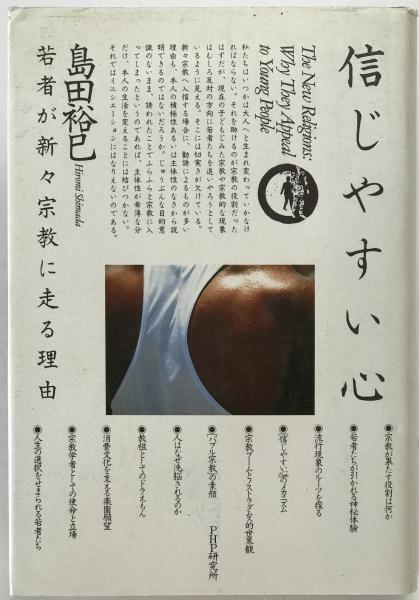 信じやすい心
The New Religions:
Why They Appeal
to Young People
私たちはいつかは大人へと生まれ変わっていかなけ
ればならない。それを助けるのが宗教の役割だった
はずだが、現在の子どもじみた宗教や宗教的な現象
はむしろ反対の方向に若者たちを追いやろうとして
いるように見える。そこには切実さが欠けている。
新々宗教へ入信する場合に、勧誘によるものが多い
理由も、本人の積極性あるいは主体性のなさから説
明できるのではないだろうか。じゅうぶんな目的意
識のないまま、誘われたことでふらふらと宗教に入
ってしまったというのであれば、主体性が希薄な分
だけ、本人の生活を変えることには結びつかない。
それではイニシエーションにはなりえないのである。
島田裕巳
Hiromi Shimada
若者が新々宗教に走る理由
●宗教が果たす役割は何か
●若者たちが引かれる神秘体験
●流行現象のルーツを探る
●「信じやすい心」のメカニズム
●宗教ブームとノストラダムス的世界観
●「バブル宗教」の素顔
●人はなぜ洗脳されるのか
●教祖としてのドラえもん
●消費文化を支える楽園願望
●宗教学者としての使命と立場
●人生の選択をせまられる若者たち
PHP研究所